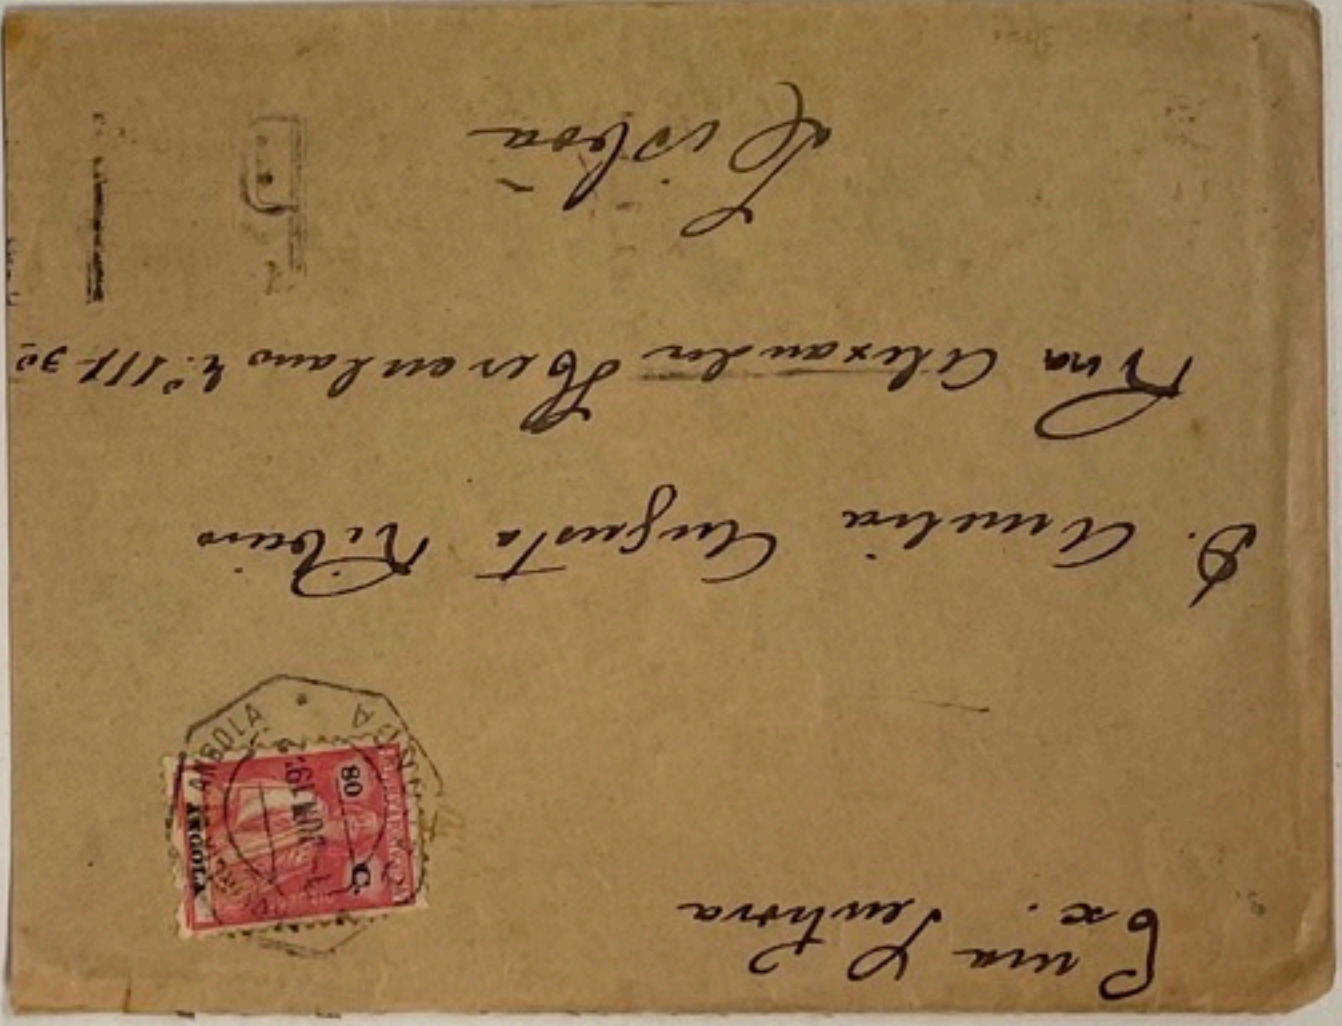 Exma Senhora
D. Amelia Augusta Ribeiro
Rua Alexandre Herculano N.º 111-3º
Lisboa
80 C.
ANGOLA
ANGOLA
JUN